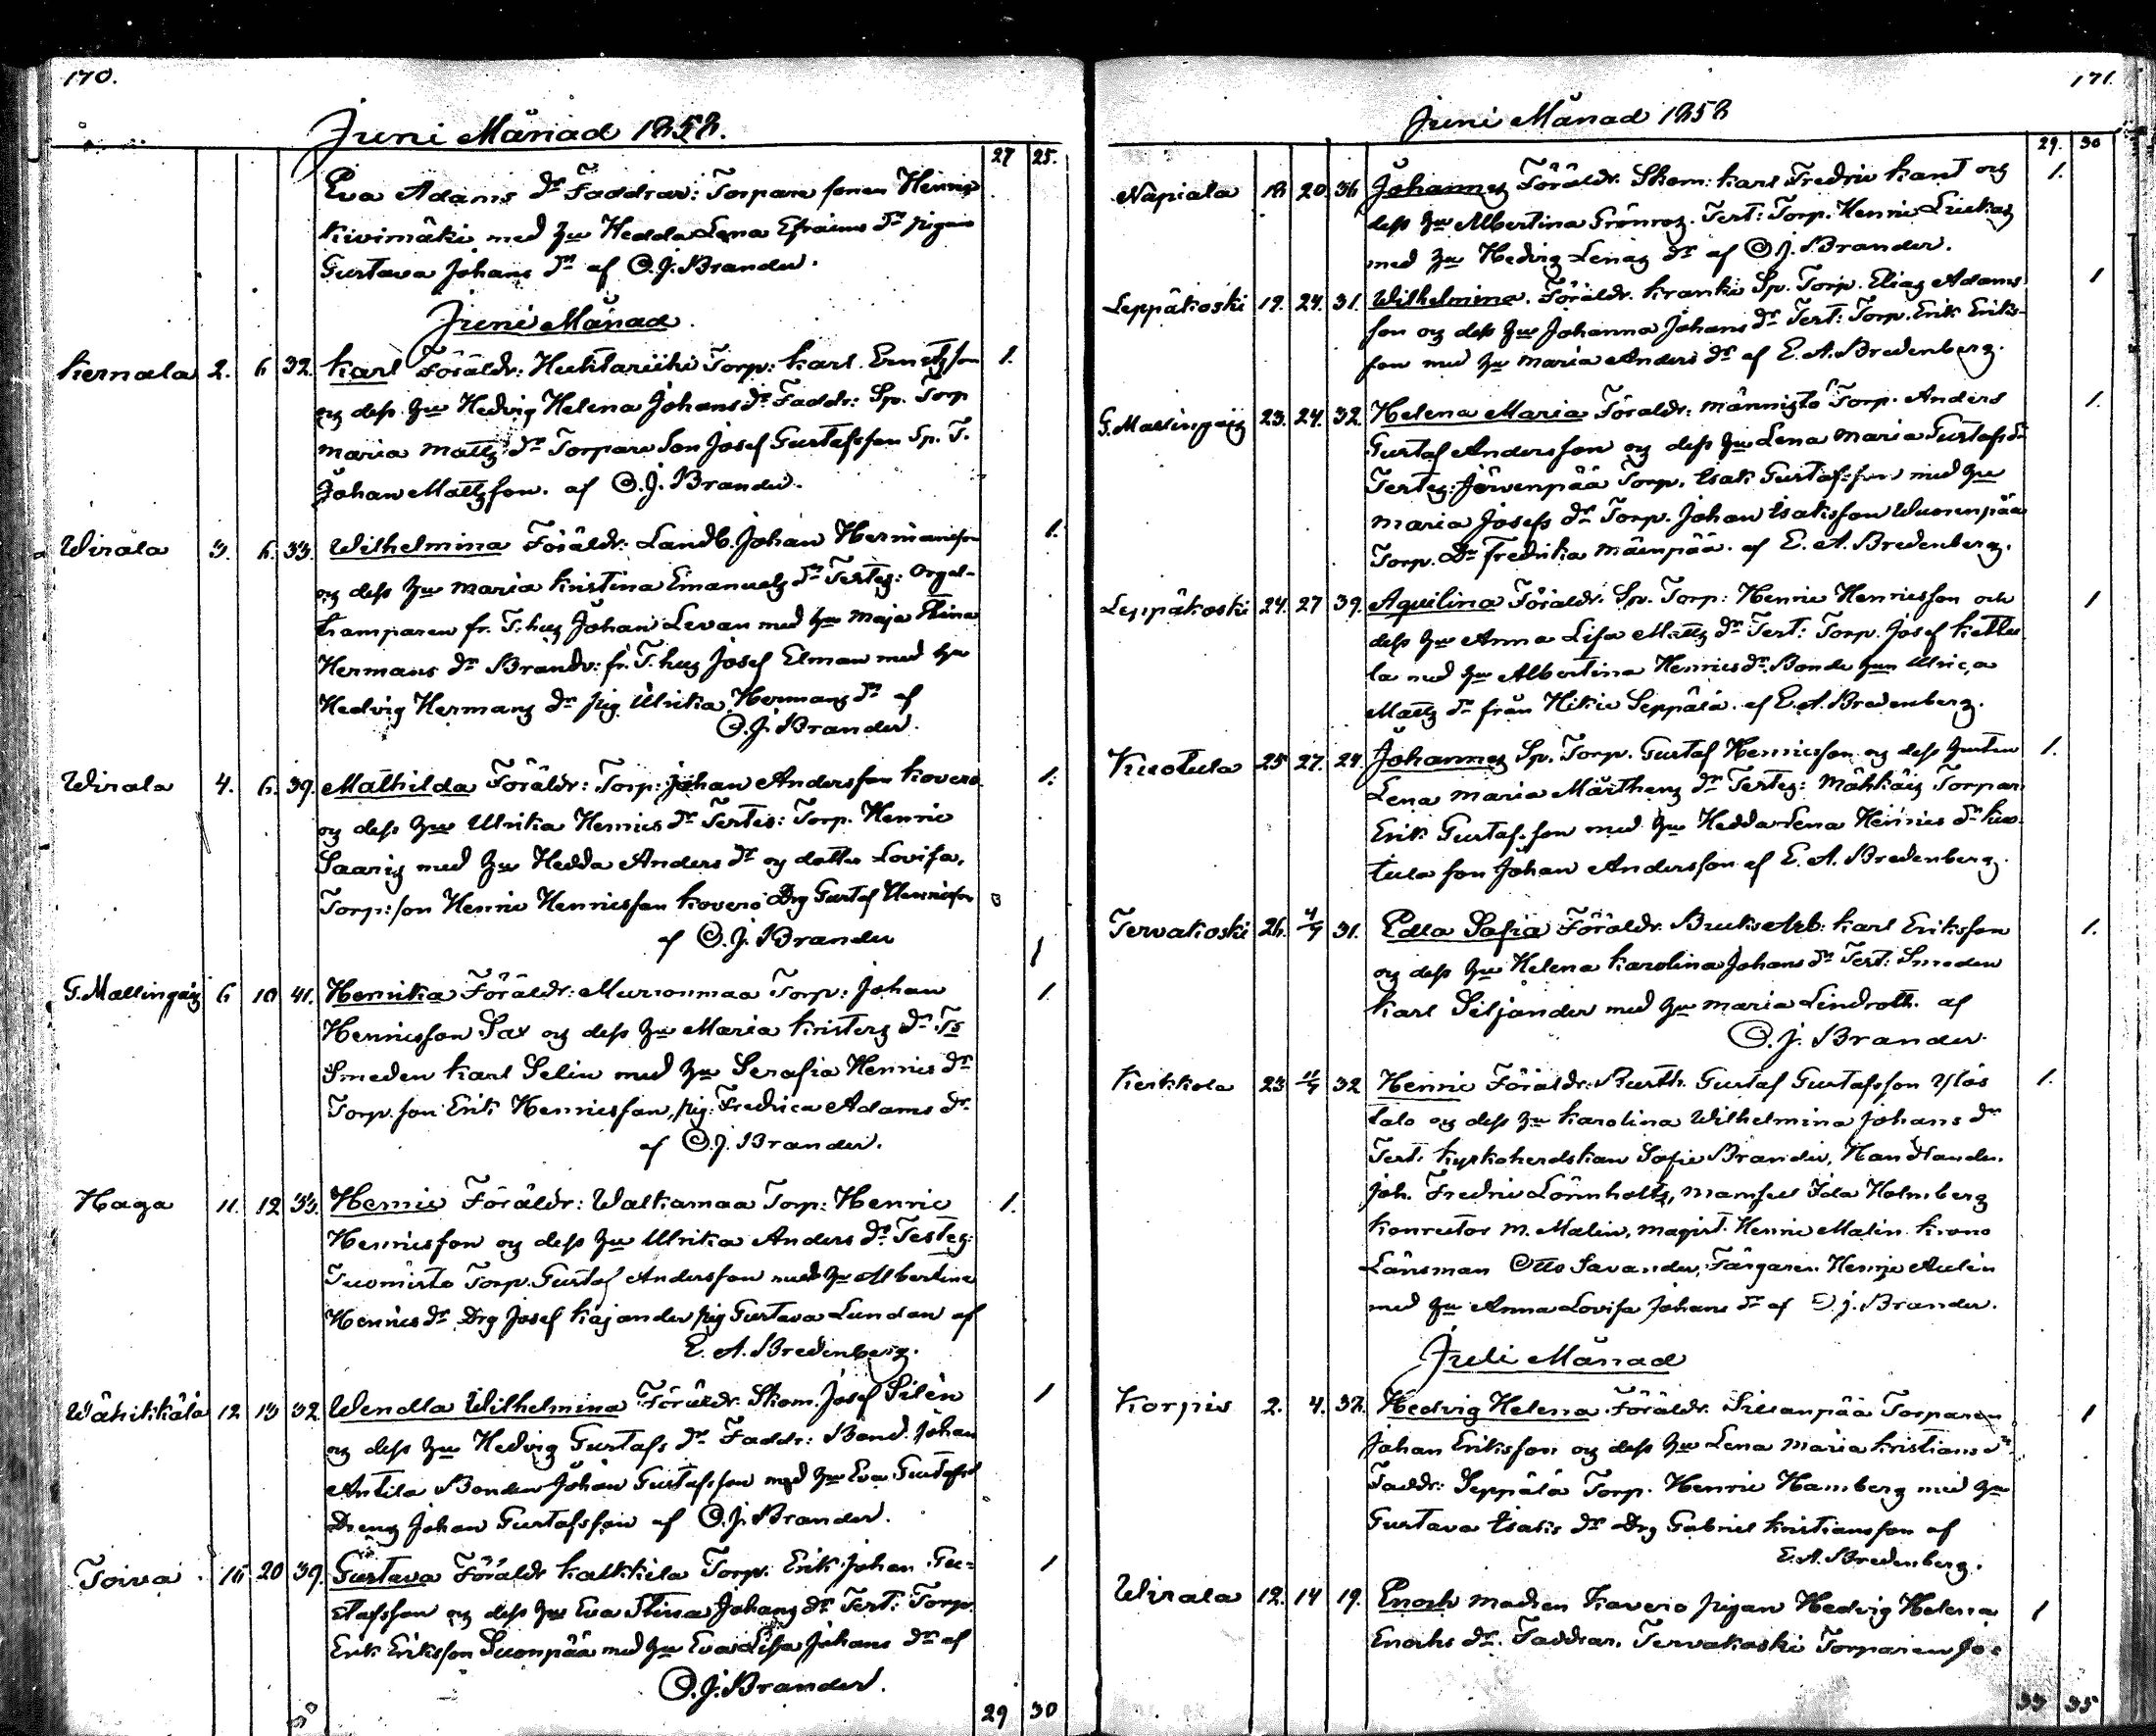 170.
Juni Månad 1858.
27 25.
Eva Adams dr Faddrar: Torpare sonen Henric
Kivimäki med hu Hedda Lena Efraims dr pigan
Gustava Johans dr af O. J. Brander.
Juni Månad.
Kernala 2. 6 32. Karl Föräldr: Huhtariihi Torp: Karl Ernstsson 1.
og dess hu Hedvig Helena Johans dr Faddr: Sp. Torp
Maria Matts dr Torpare Son Josef Gustafsson Sp. T.
Johan Mattsson. af O. J. Brander.
Wirala 3. 6. 33. Wilhelmina Föräldr: Landb. Johan Hermansson 1.
og dess hu Maria Kristina Emanuels dr Testes: Orgel-
tramparen fr. T. hus Johan Levan med hu Maja Stina
Hermans dr Brandv: fr. T. hus Josef Elman med hu
Hedvig Hermans dr pig. Ulrika Hermans dr af
O. J. Brander.
Wirala 4. 6. 39. Mathilda Föräldr: Torp: Johan Andersson Kovero 1.
og dess hu Ulrika Henrics dr Testes: Torp. Henric
Saaris med hu Hedda Anders dr og dotter Lovisa,
Torp: son Henric Henricsson Kovero Drg Gustaf Henricsson
af O. J. Brander
1
G. Mallingais 6 10 41. Henrika Föräldr: Murronmaa Torp: Johan 1.
Henricsson Sax og dess hu Maria Kristers dr Ts
Smeden Karl Selin med hu Serafia Henrics dr
Torp. son Erik Henricsson, pig: Fredrica Adams dr
af O. J. Brander.
Haga 11. 12 33. Henric Föräldr: Walkamaa Torp: Henric 1.
Henricsson og dess hu Ulrika Anders dr Testes:
Tuomisto Torp. Gustaf Andersson med hu Albertina
Henrics dr Drg Josef Kajander pig Gustava Lundan af
E. A. Bredenberg.
Wähikkälä 12 13 32. Wendla Wilhelmina Föräldr. Skom. Josef Silén 1
og dess hu Hedvig Gustafs dr Faddr: Bond. Johan
Antila Bonden Johan Gustafsson med hu Eva Gustafsd
Dreng Johan Gustafsson af O. J. Brander.
Toiva 16 20 39. Gustava Föräldr Kalkkila Torp. Erik Johan Gu- 1
stafsson og dess hu Eva Stina Johans dr Test: Torp.
Erik Eriksson Suonpää med hu Eva Lisa Johans dr af
O. J. Brander.
29 30
171.
Juni Månad 1858
29. 30
Napiala 18 20. 36 Johannes Föräldr. Skom: Karl Fredric Kant og 1.
dess hu Albertina Grönros. Test: Torp. Henric Luckas
med hu Hedvig Lenas dr af O. J. Brander.
Leppäkoski 19. 24. 31. Wilhelmina. Föräldr. Kranki Sp. Torp. Elias Adams 1
son og dess hu Johanna Johans dr Test: Torp. Erik Eriks-
son med hu Maria Anders dr af E. A. Bredenberg.
G. Mallingais 23. 24. 32. Helena Maria Föräldr: Männistö Torp. Anders 1.
Gustaf Andersson og dess hu Lena Maria Gustafs dr
Testes: Järvenpää Torp. Isak Gustafsson med hu
Maria Josefs dr Torp. Johan Isaksson Wuorenpää
Torp. Dr Fredrika Mäenpää. af E. A. Bredenberg.
Leppäkoski 24. 27 39. Aquilina Föräldr. Sp. Torp: Henric Henricsson och 1
dess hu Anna Lisa Matts dr Test: Torp. Josef Kettu
la med hu Albertina Henrics dr Bonde hun Ulrica
Matts dr från Hikie Seppälä. af E. A. Bredenberg.
Kuotula 25 27. 24. Johannes Sp. Torp. Gustaf Henricsson og dess hustru 1.
Lena Maria Mårthens dr Testes: Mähkäis Torpar.
Erik Gustafsson med hu Hedda Lena Henrics dr Kuo-
tula son Johan Andersson af E. A. Bredenberg.
Tervakoski 26. 4/7 31. Edla Sofia Föräldr. Bruks Arb: Karl Eriksson 1.
og dess hu Helena Karolina Johans dr Test: Smeden
Karl Siljander med hu Maria Lindroth. af
O. J. Brander.
Kerkkola 23 11/7 32 Henric Föräldr: Rusth. Gustaf Gustafsson Ylös 1.
talo og dess hu Karolina Wilhelmina Johans dr
Test. Kyrkoherdskan Sofie Brander, Handlanden
Joh. Fredric Lönnholtz, Mamsell Ida Holmberg
Konrector M. Malin, Magist. Henric Malin Krono
Länsman Otto Savander, Färgaren Henric Aulin
med hu Anna Lovisa Johans dr af O. J. Brander.
Juli Månad
Korpis 2. 4. 32. Hedvig Helena Föräldr. Siesanpää Torparen 1
Johan Eriksson og dess hu Lena Maria Kristians dr
Faddr: Seppälä Torp. Henric Hamberg med hu
Gustava Isaks dr Drg Gabriel Kristiansson af
E. A. Bredenberg.
Wirala 12. 14 19. Enoch Modren Kavero pigan Hedvig Helena 1
Enochs dr. Faddrar. Tervakoski Torparen Jo-
33 35